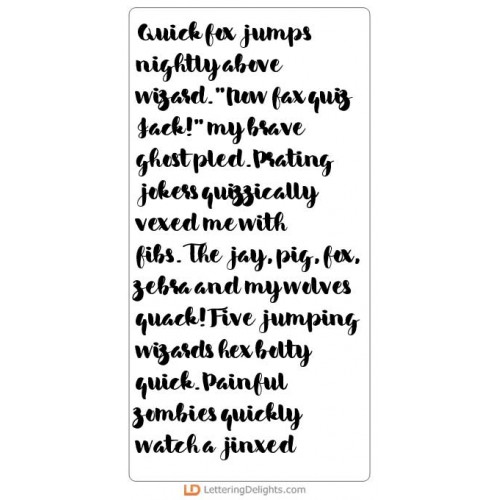 Quick fox jumps
nightly above
wizard. "Now fax quiz
Jack!" my brave
ghost pled. Prating
jokers quizzically
vexed me with
fibs. The jay, pig, fox,
zebra and my wolves
quack! Five jumping
wizards hex bolty
quick. Painful
zombies quickly
watch a jinxed
LD LetteringDelights.com